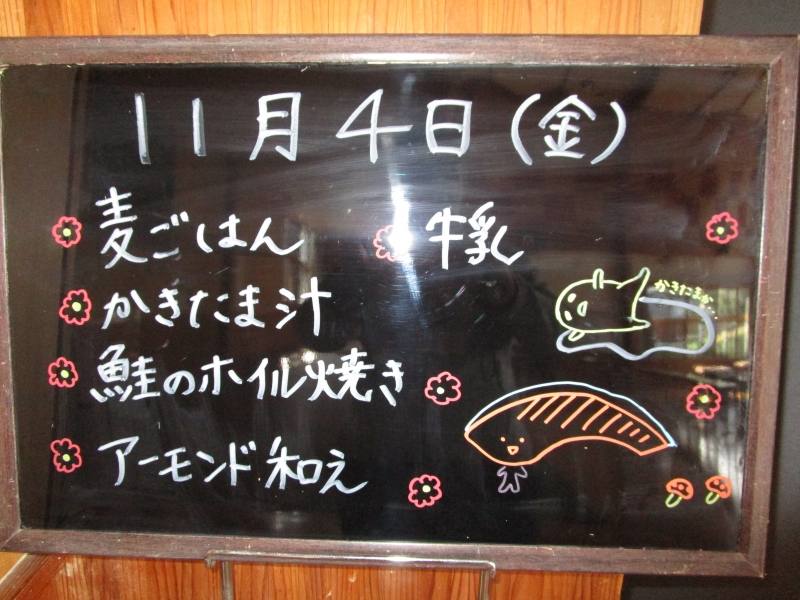 11月4日(金)
麦ごはん 牛乳
かきたま汁
鮭のホイル焼き
アーモンド和え
かきたまか